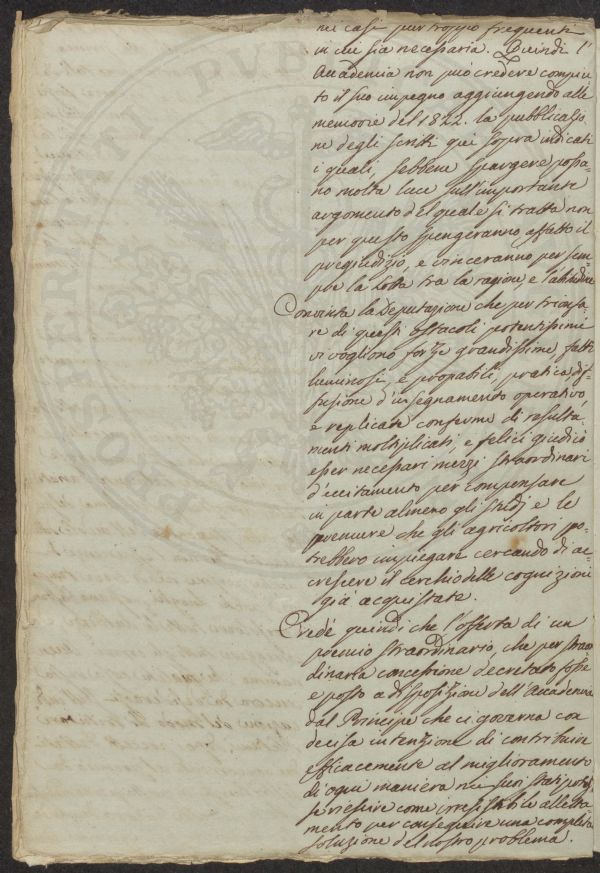 ni casi pur troppo frequenti
in cui sia necessaria. Quindi l'
Accademia non può credere compiu-
to il suo impegno aggiungendo alle
memorie del 1822. la pubblicazio
ne degli scritti qui sopra indicati
i quali, sebbene spargere possa-
no molta luce sull'importante
argomento del quale si tratta non
per questo spengeranno affatto il
pregiudizio, e vinceranno per sem
pre la lotta tra la ragione, e l'abitudine
Convinta la Deputazione che per trionfa
re di questi ostacoli potentissimi
vi vogliono forze grandissime, fatti
luminosi, e palpabili, pratica, dif
fusione d'insegnamento operativo,
e replicate conferme di resulta-
menti moltiplicati, e felici giudicò
esser necessari mezzi straordinari
d'eccitamento per compensare
in parte almeno gli studj e le
premure che gli agricoltori po-
trebbero impiegare cercando di ac
crescere il cerchio delle cognizioni
già acquistate.
Credè quindi che l'offerta di un
premio straordinario, che per straor
dinaria concessione decretato fosse
e posto a disposizione dell'Accademia
dal Principe che ci governa con
decisa intenzione di contribuire
efficacemente al miglioramento
di ogni maniera nei suoi stati potes
se riescire come irresistibile alletta-
mento per conseguire una completa
soluzione del nostro problema.